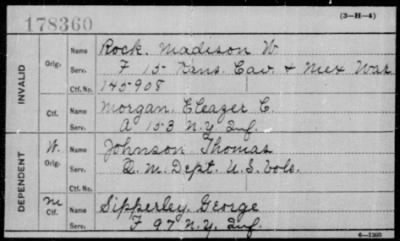 178360
(3-H-4)
INVALID
Orig. Name Rock. Madison W
Serv. F 15 Kans. Cav. & Mex War
Ctf. No. 145908
Ctf. Name Morgan. Eleazer C.
Serv. A 153 N.Y. Inf.
DEPENDENT
W. Orig. Name Johnson Thomas
Serv. Q. M. Dept. U.S. Vols.
Ctf. No.
M Ctf. Name Sipperley. George
Serv. F 97 N.Y. Inf.
6—1360